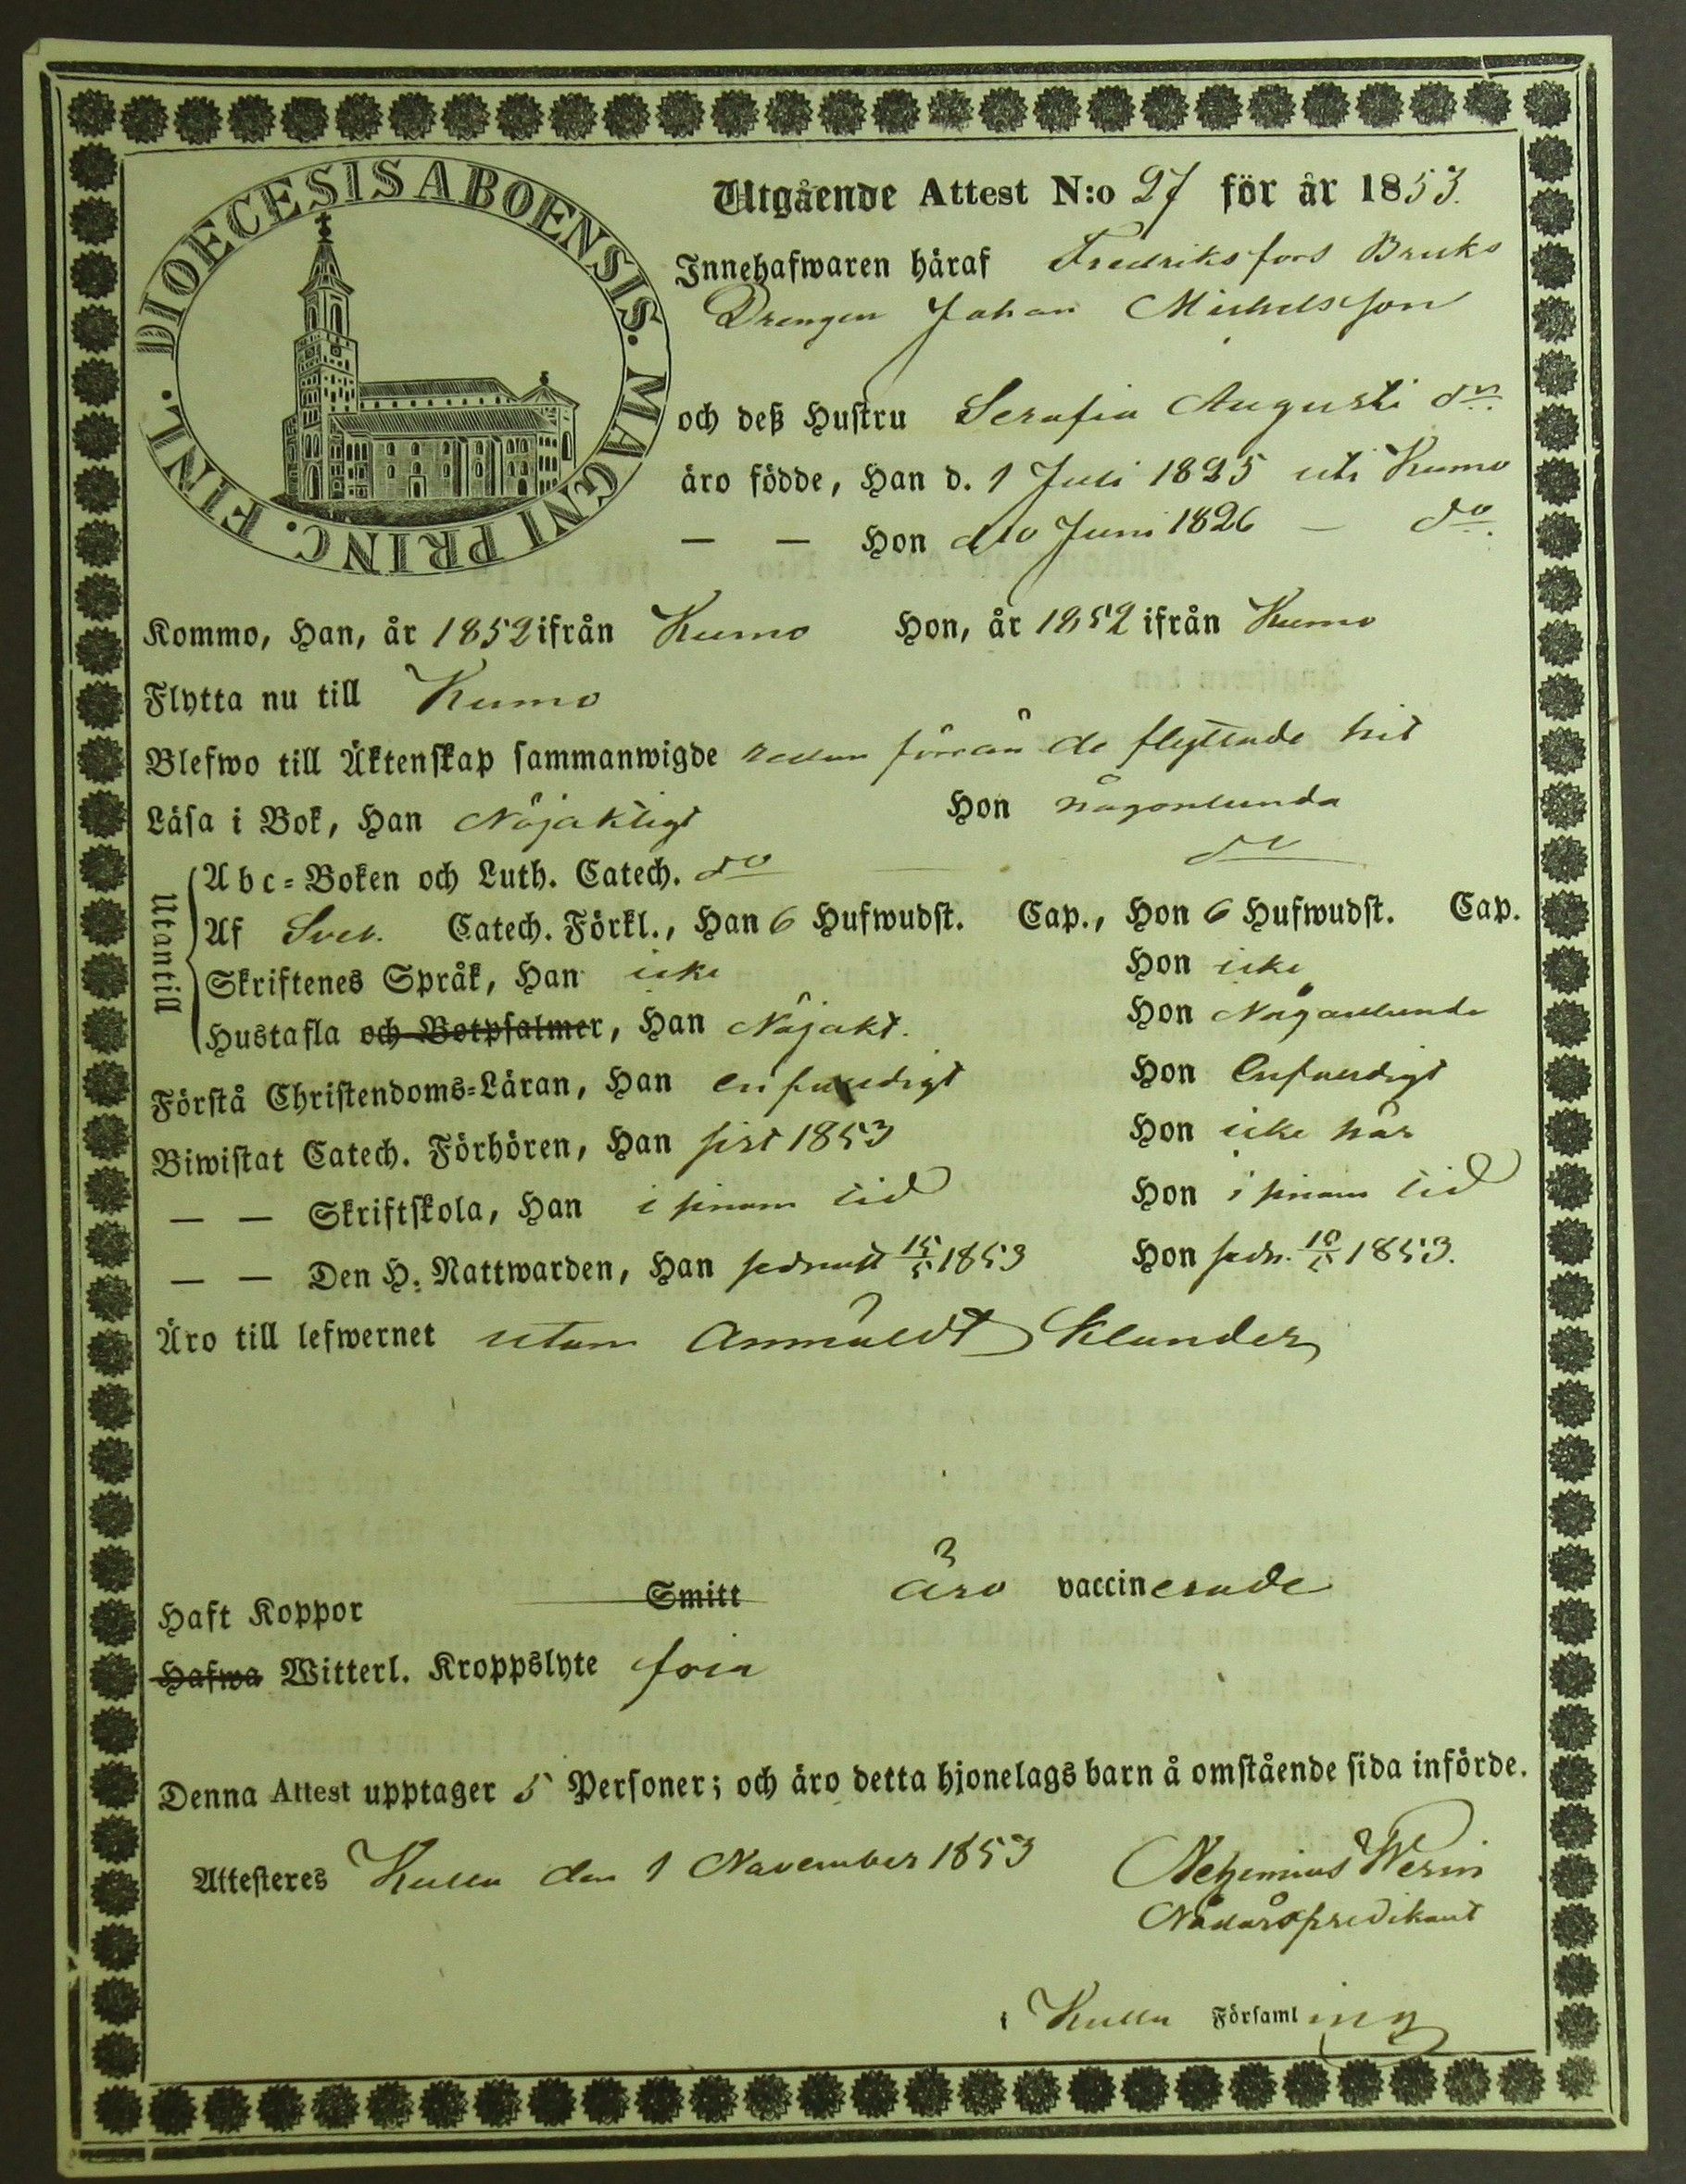 DIOECESIS ABOENSIS. MAGNI PRINC. FINL.
Utgående Attest N:o 27 för år 1853.
Innehafwaren häraf Fredriksfors Bruks
Drengen Johan Michelsson
och deß Hustru Serafia Augusti dr.
äro födde, Han d. 1 Juli 1825 uti Kumo
— — Hon d 10 Juni 1826 — do.
Kommo, Han, år 1852 ifrån Kumo Hon, år 1852 ifrån Kumo
Flytta nu till Kumo
Blefwo till Äktenskap sammanwigde redan förrän de flyttade hit
Läsa i Bok, Han Nöjaktigt Hon någorlunda
Utantill
Abc-Boken och Luth. Catech. do — do
Af Sveb. Catech. Förkl., Han 6 Hufwudst. Cap., Hon 6 Hufwudst. Cap.
Skriftenes Språk, Han icke Hon icke
Hustafla och Botpsalmer, Han Nöjakt. Hon Någorlunda
Förstå Christendoms-Läran, Han enfaldigt Hon Enfaldigt
Biwistat Catech. Förhören, Han sist 1853 Hon icke här
— — Skriftskola, Han i sinom tid Hon i sinom tid
— — Den H. Nattwarden, Han sednast 15/5 1853 Hon sedn. 1853.
Äro till lefwernet utan anmäldt klander
Haft Koppor Smitt äro vaccinerade
Hafwa Witterl. Kroppslyte fria
Denna Attest upptager 5 Personer; och äro detta hjonelags barn å omstående sida införde.
Attesteres Kulla den 1 November 1853 Nehemias Werin
Nådårspredikant
i Kulla Församling